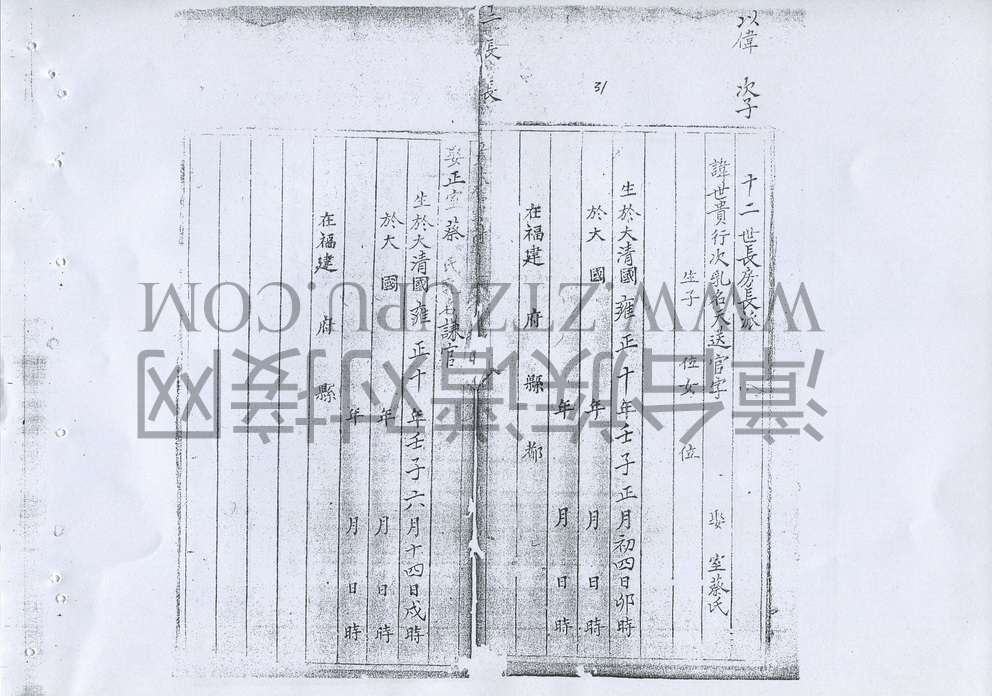 以偉 次子
31
十二世長房長派
諱世貴行次乳名天送官字 娶 室蔡氏
生子 位女 位
生於大清國雍正十年壬子正月初四日卯時
於大 國 年 月 日 時
年 月 日 時
在福建 府 縣 都
長 長
娶正室蔡氏 名謙官
生於大清國雍正十 年壬子六月十四日戌時
於大 國 年 月 日 時
年 月 日 時
在福建 府 縣
WWW.ZTZUPU.COM
漳台族谱对接网